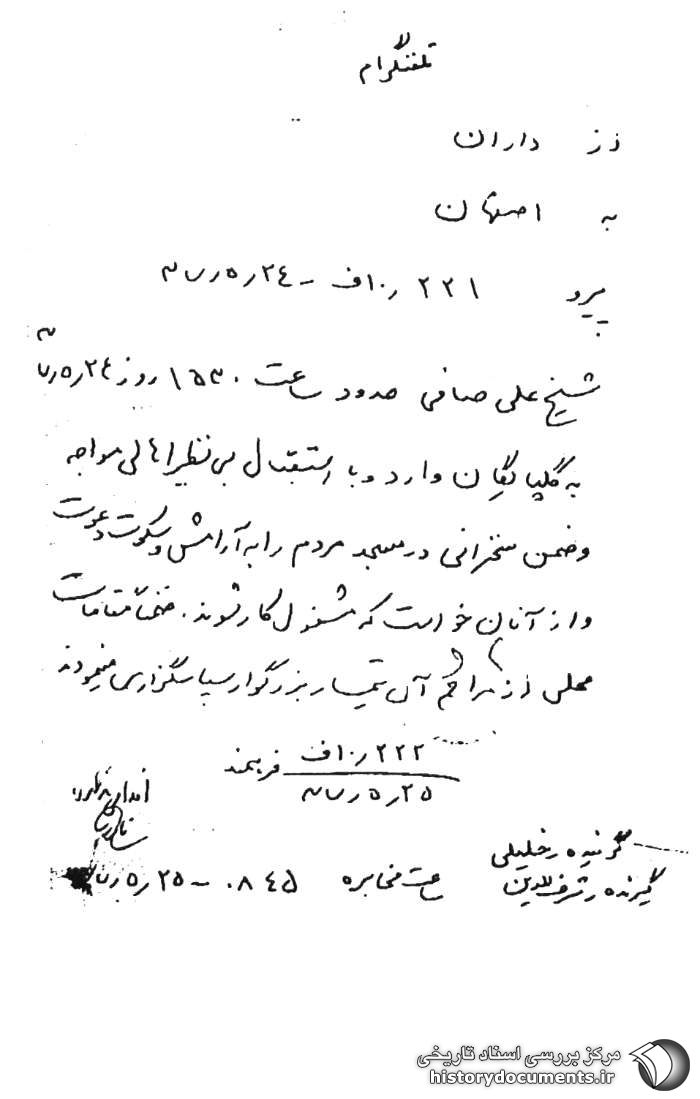 تلفنگرام
از داران
به اصفهان
پیرو ۲۲۱ ر۱۰ف – ۲۴ر۵ر۳۷
شیخ علی صافی حدود ساعت ۱۵۳۰ روز ۲۴ر۵ر۳۷
به گلپایگان وارد و با استقبال بی نظیر اهالی مواجه
وضمن سخنرانی در مسجد مردم را به آرامش و سکوت دعوت
و از آنان خواست که مشغول کار شوند. ضمناً مقامات
محلی از مراحم آن تیمسار بزرگوار سپاسگزاری مینمودند
۲۲۲ر۱۰ف فرهمند
۲۵ر۵ر۳۷
گوینده رخلیلی
گیرنده رشرف الدین ساعت مخابره ۰۸۴۵ – ۲۵ر۵ر
مرکز بررسی اسناد تاریخی
historydocuments.ir